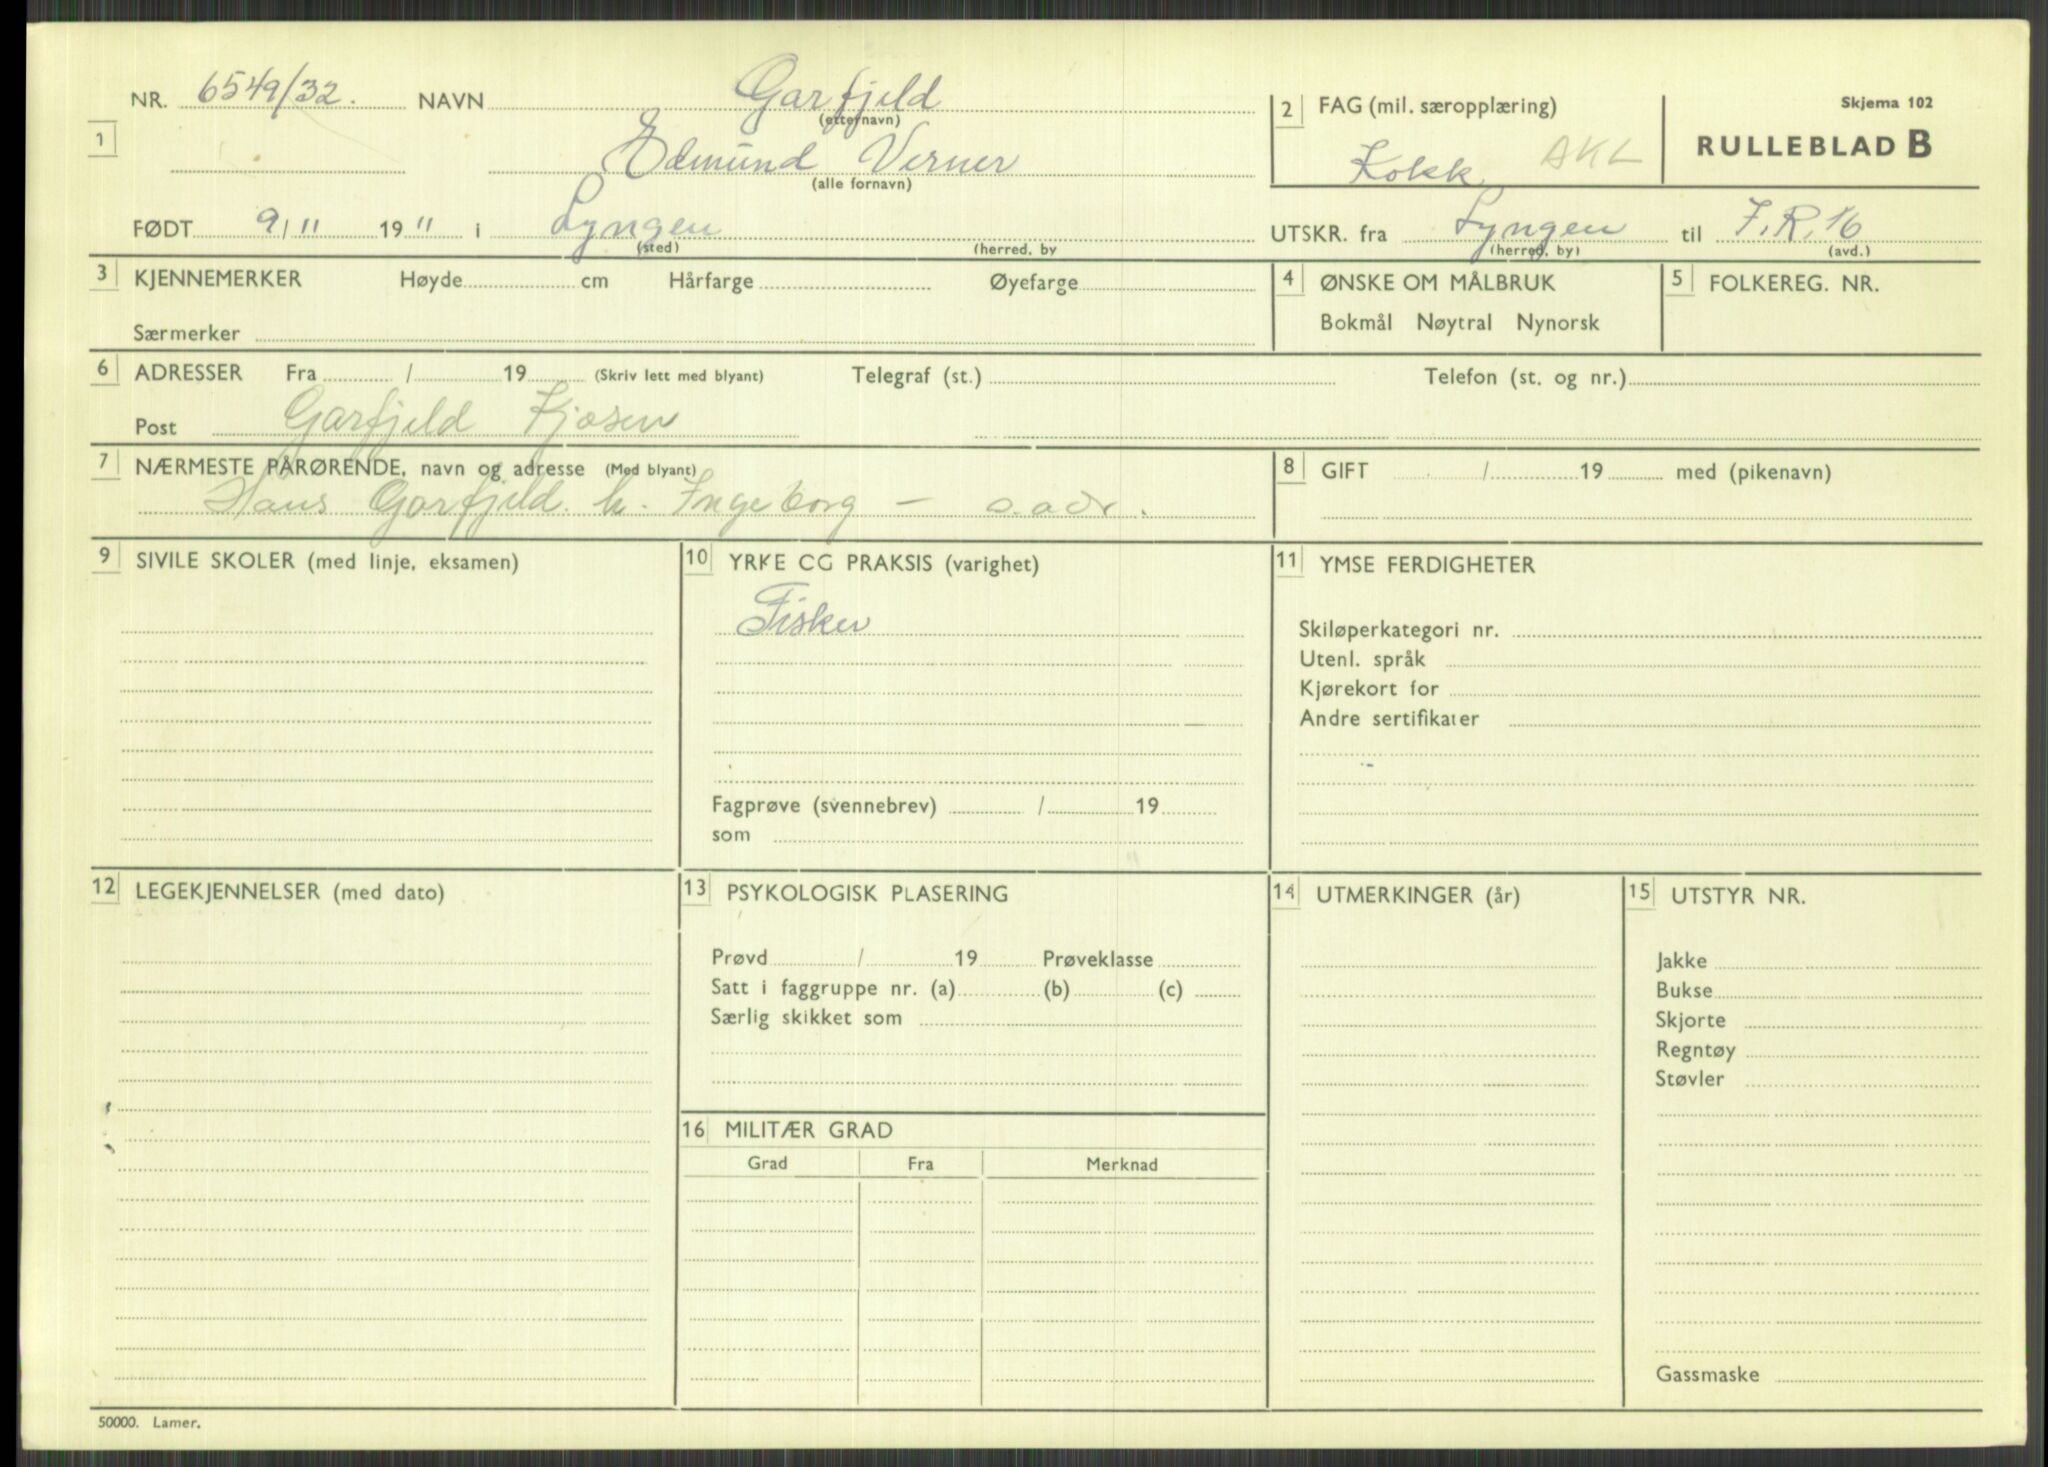 NR. 6549/32. NAVN Garfjeld
(etternavn)
1 Edmund Verner
(alle fornavn)
2 FAG (mil. særopplæring)
Kokk AKL
Skjema 102
RULLEBLAD B
FØDT 9/11 1911 i Lyngen
(sted) (herred, by
UTSKR. fra Lyngen til I.R.16
(herred, by) (avd.)
3 KJENNEMERKER Høyde cm Hårfarge Øyefarge
Særmerker
4 ØNSKE OM MÅLBRUK
Bokmål Nøytral Nynorsk
5 FOLKEREG. NR.
6 ADRESSER Fra / 19 (Skriv lett med blyant) Telegraf (st.) Telefon (st. og nr.)
Post Garfjeld Kjosen
7 NÆRMESTE PÅRØRENDE, navn og adresse (Med blyant)
Hans Garfjeld. h. Ingeborg — s. adr.
8 GIFT / 19 med (pikenavn)
9 SIVILE SKOLER (med linje, eksamen)
10 YRKE OG PRAKSIS (varighet)
Fisker
Fagprøve (svennebrev) / 19
som
11 YMSE FERDIGHETER
Skiløperkategori nr.
Utenl. språk
Kjørekort for
Andre sertifikater
12 LEGEKJENNELSER (med dato)
13 PSYKOLOGISK PLASERING
Prøvd / 19 Prøveklasse
Satt i faggruppe nr. (a) (b) (c)
Særlig skikket som
14 UTMERKINGER (år)
15 UTSTYR NR.
Jakke
Bukse
Skjorte
Regntøy
Støvler
Gassmaske
16 MILITÆR GRAD
Grad Fra Merknad
50000. Lamer.